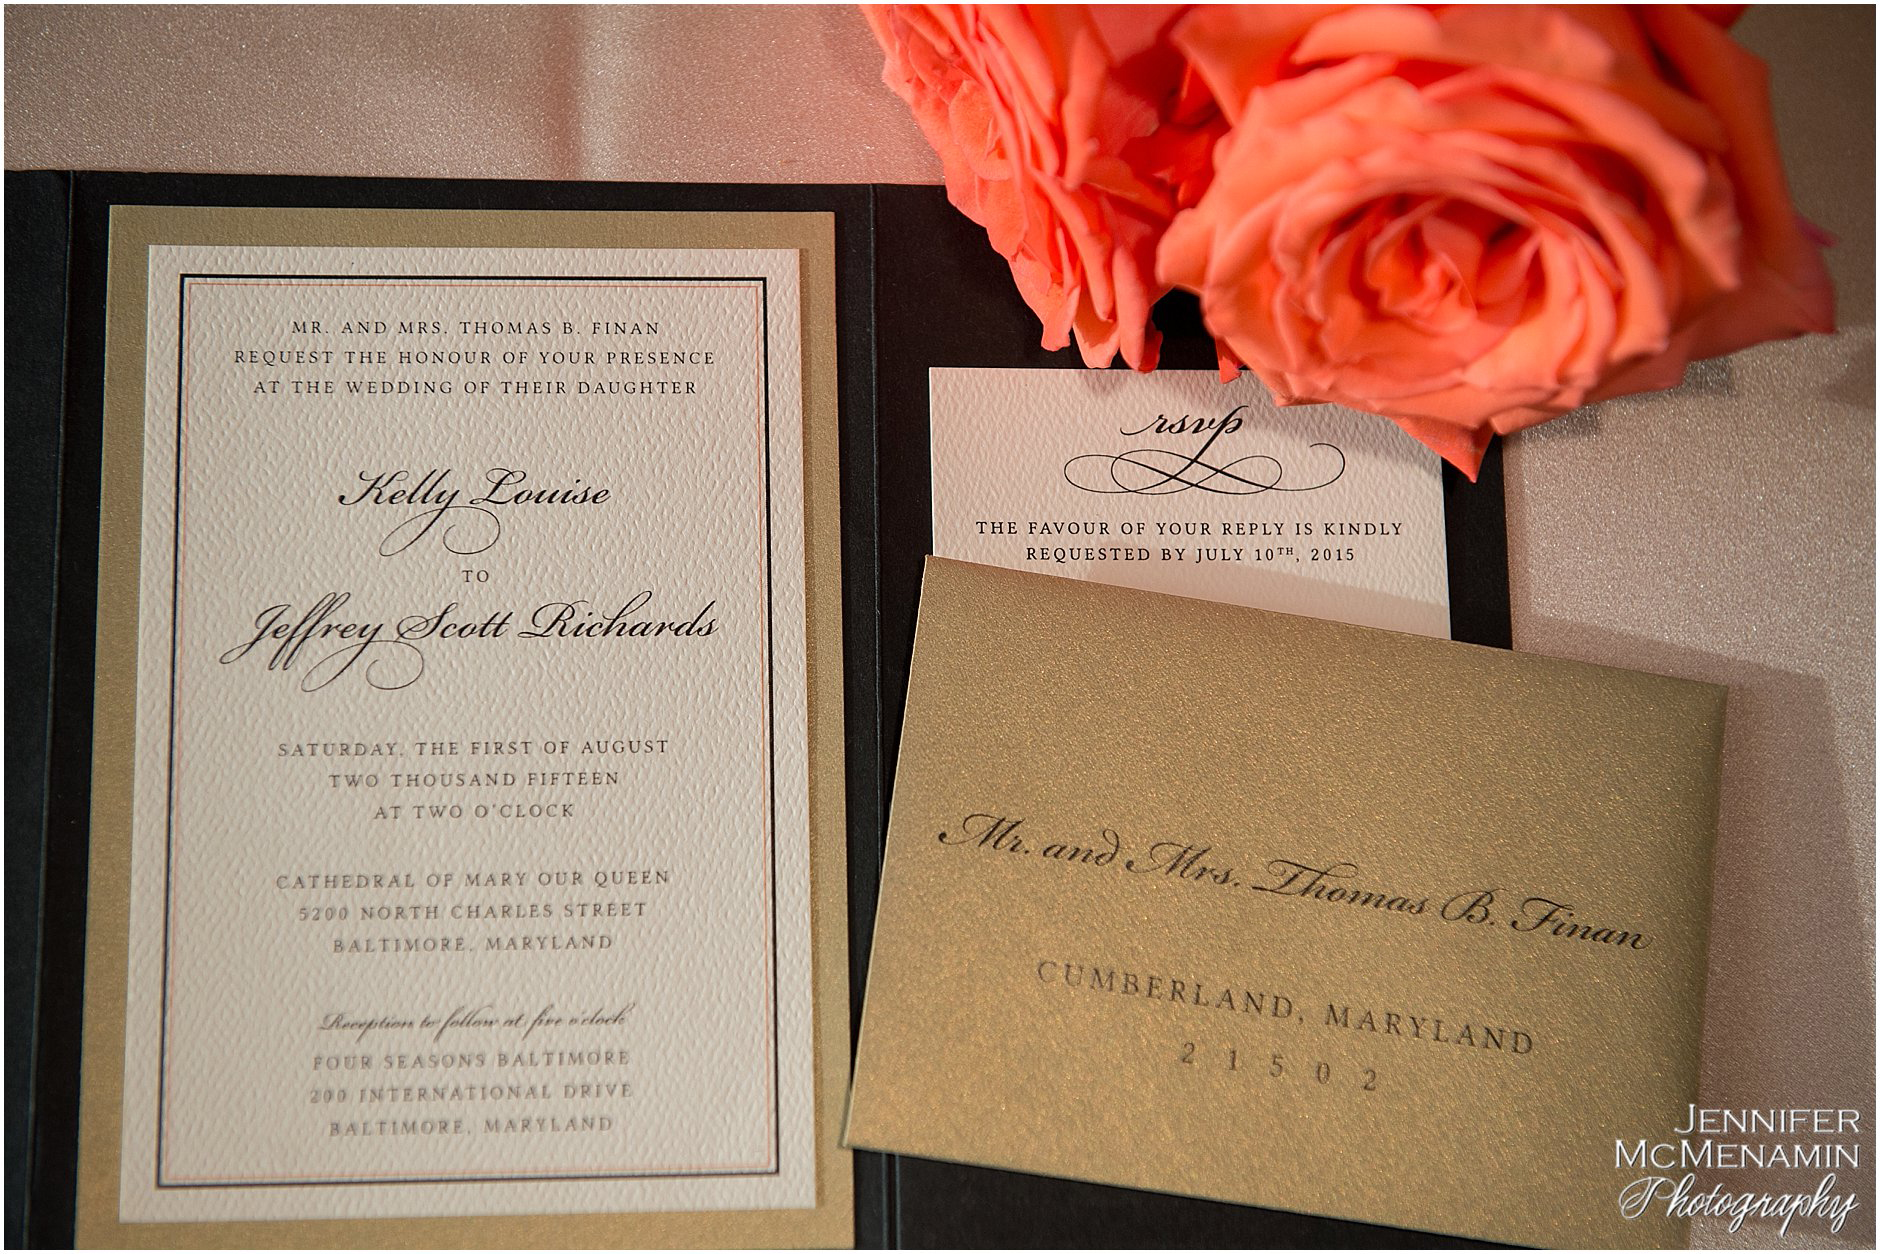 MR. AND MRS. THOMAS B. FINAN
REQUEST THE HONOUR OF YOUR PRESENCE
AT THE WEDDING OF THEIR DAUGHTER
Kelly Louise
TO
Jeffrey Scott Richards
SATURDAY, THE FIRST OF AUGUST
TWO THOUSAND FIFTEEN
AT TWO O'CLOCK
CATHEDRAL OF MARY OUR QUEEN
5200 NORTH CHARLES STREET
BALTIMORE, MARYLAND
Reception to follow at five o'clock
FOUR SEASONS BALTIMORE
200 INTERNATIONAL DRIVE
BALTIMORE, MARYLAND
rsvp
THE FAVOUR OF YOUR REPLY IS KINDLY
REQUESTED BY JULY 10TH, 2015
Mr. and Mrs. Thomas B. Finan
CUMBERLAND, MARYLAND
21502
JENNIFER
MCMENAMIN
Photography